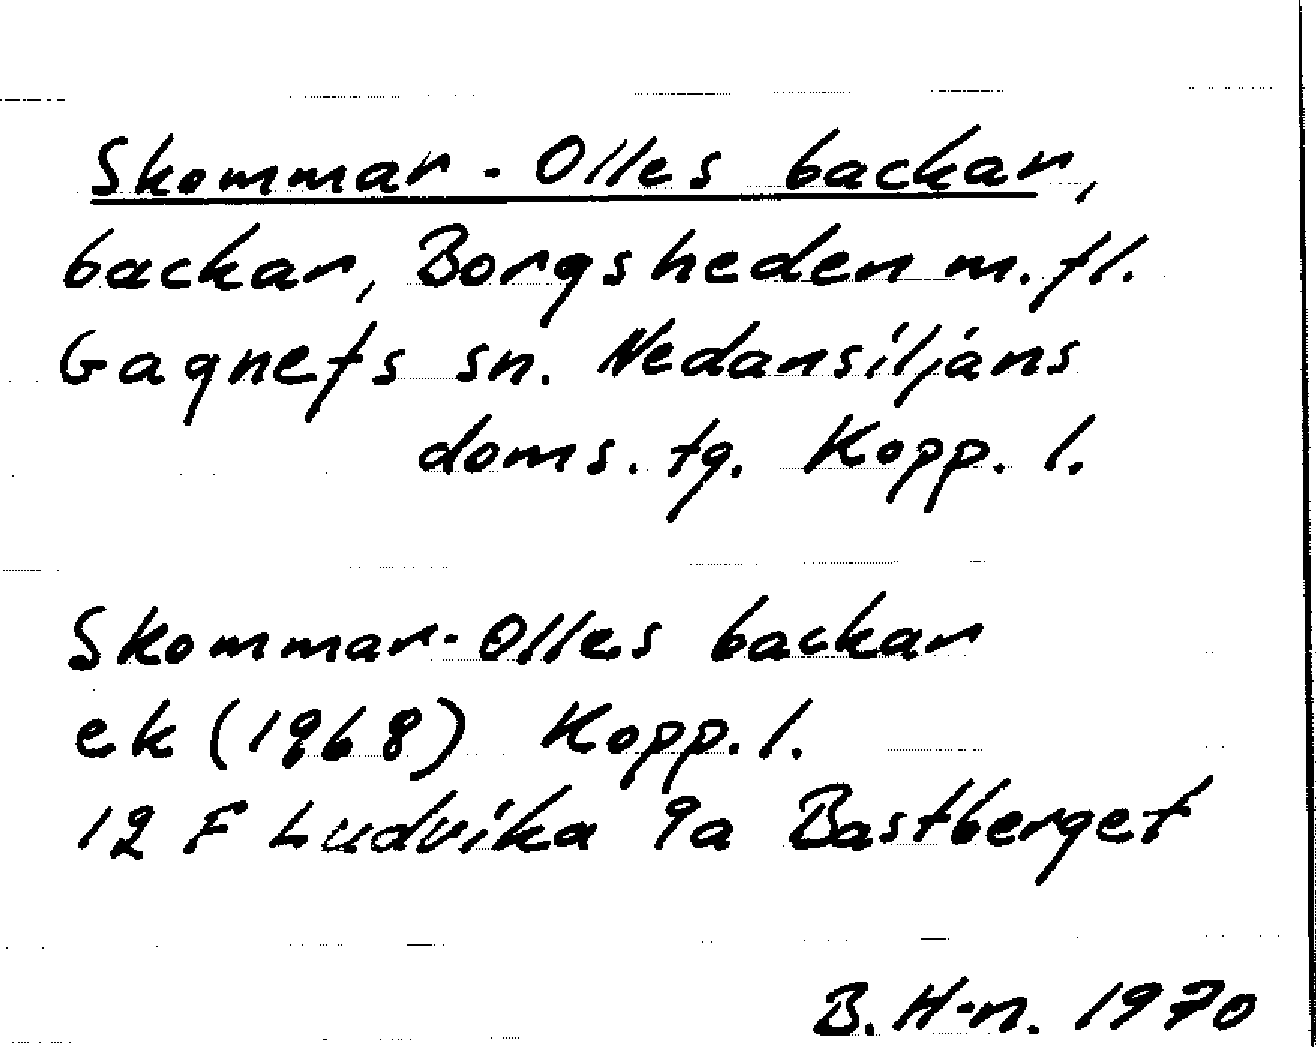 Skommar-Olles backar,
backar, Borgsheden m.fl.
Gagnefs sn. Nedansiljans
doms. tg. Kopp. l.
Skommar-Olles backar
ek (1968) Kopp. l.
12 F Ludvika 9a Bastberget
B. H-n. 1970